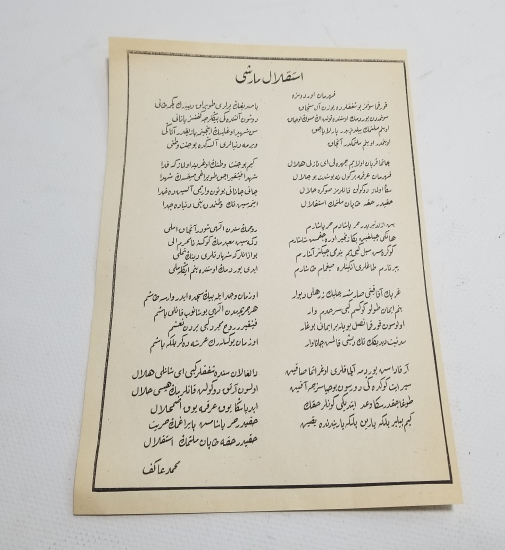 استقلال مارشی
قهرمان اوردومزه
قورقما سونمز بو شفقلرده یوزن آل سنجاق
سونمدن یوردمك اوستنده توتن اك صوك اوجاق
او بنم ملتمك ییلدیزیدر پارلایاجق
او بنمدر او بنم ملتمكدر آنجاق
چاتما قربان اولایم چهره‌ڭی ای نازلی هلال
قهرمان عرقمه برگول نه بو شدت بو جلال
سڭا اولماز دوكولن قانلریمز صوكره حلال
حقیدر حقه طاپان ملتمك استقلال
بن ازلدنبریدر حر یاشادم حر یاشارم
هانگی چیلغین بڭا زنجیر اوره‌جقمش شاشارم
كوكره‌مش سیل گبی‌یم بندمی چیگنر آشارم
ییرتارم طاغلری انگینلره صیغمام طاشارم
غربك آفاقنی صارمشسه چلیك زرهلی دیوار
بنم ایمان طولو گوگسم گبی سرحدم وار
اولوسون قورقما ناصل بویله بر ایمانی بوغار
مدنیت دیدیگك تك دیشی قالمش جاناوار
آرقاداش یوردمه آلچاقلری اوغراتما صاقین
سپر ایت گوگده‌ڭی دورسون بو حیاسزجه آقین
طوغاجقدر سڭا وعد ایتدیگی گونلر حقك
كیم بیلیر بلكه یارین بلكه یاریندنده یقین
باصدیغك یرلری طوپراق دییه‌رك گچمه طانی
دوشون آلتنده‌كی بیڭلرجه كفنسز یاتانی
سن شهید اوغلیسك اینجیتمه یازیقدر آتاڭی
ویرمه دنیالری آلسه‌ڭده بو جنت وطنی
كیم بو جنت وطنك اوغرینه اولماز كه فدا
شهدا فیشقیراجق طوپراغی صیقسه‌ڭ شهدا
جانی جانانی بوتون واریمی آلسین ده خدا
ایتمسین تك وطنمدن بنی دنیاده جدا
روحمك سندن آلهی شودر آنجاق املی
دگمسین معبدمك گوگسنه نامحرم الی
بو اذانلر كه شهادتلری دینك تملی
ابدی یوردمك اوستنده بنم ایڭله‌ملی
او زمان وجد ایله بیڭ سجده ایدر وارسه طاشم
هر جریحه‌مدن آلهی بوشانوب قانلی یاشم
فیشقیرر روح مجرد گبی یردن نعشم
او زمان یوكسله‌رك عرشه دگر بلكه باشم
دالغالان سنده شفقلر گبی ای شانلی هلال
اولسون آرتق دوكولن قانلریمك هپسی حلال
ابدیا سڭا یوق عرقمه یوق اضمحلال
حقیدر حر یاشامش بایراغمك حریت
حقیدر حقه طاپان ملتمك استقلال
محمد عاكف